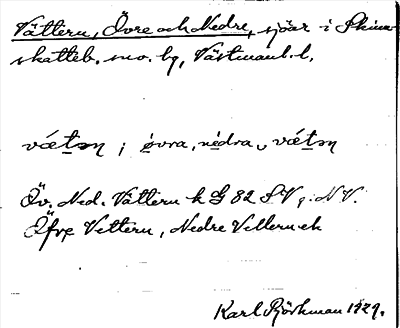 Vättern, Övre och Nedre, sjöar i Skinn-
skatteb. sn o. bg, Västmanl. l.
vǽtən ; øvra, nédra vǽtən
Öv. Ned. Vättern k G 82 SV o. NV.
Öfre Vettern, Nedre Vettern ek
Karl Björkman 1929.